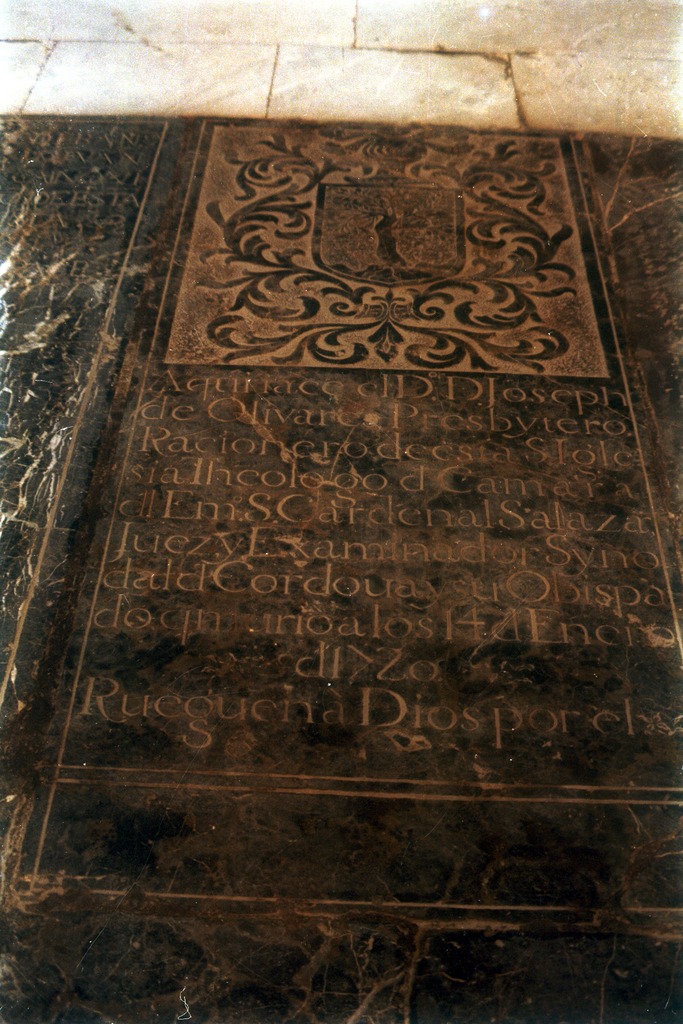 Aqui iace el D.ᵒʳ D Joseph
de Olivares Presbytero
Racionero de esta S Igle
sia Theologo d Camara
dl Em S. Cardenal Salazar
Juez y Examinador Syno
dal d Cordoua y su Obispa
do q murio a los 14 d Enero
d 1720
Rueguen a Dios por el